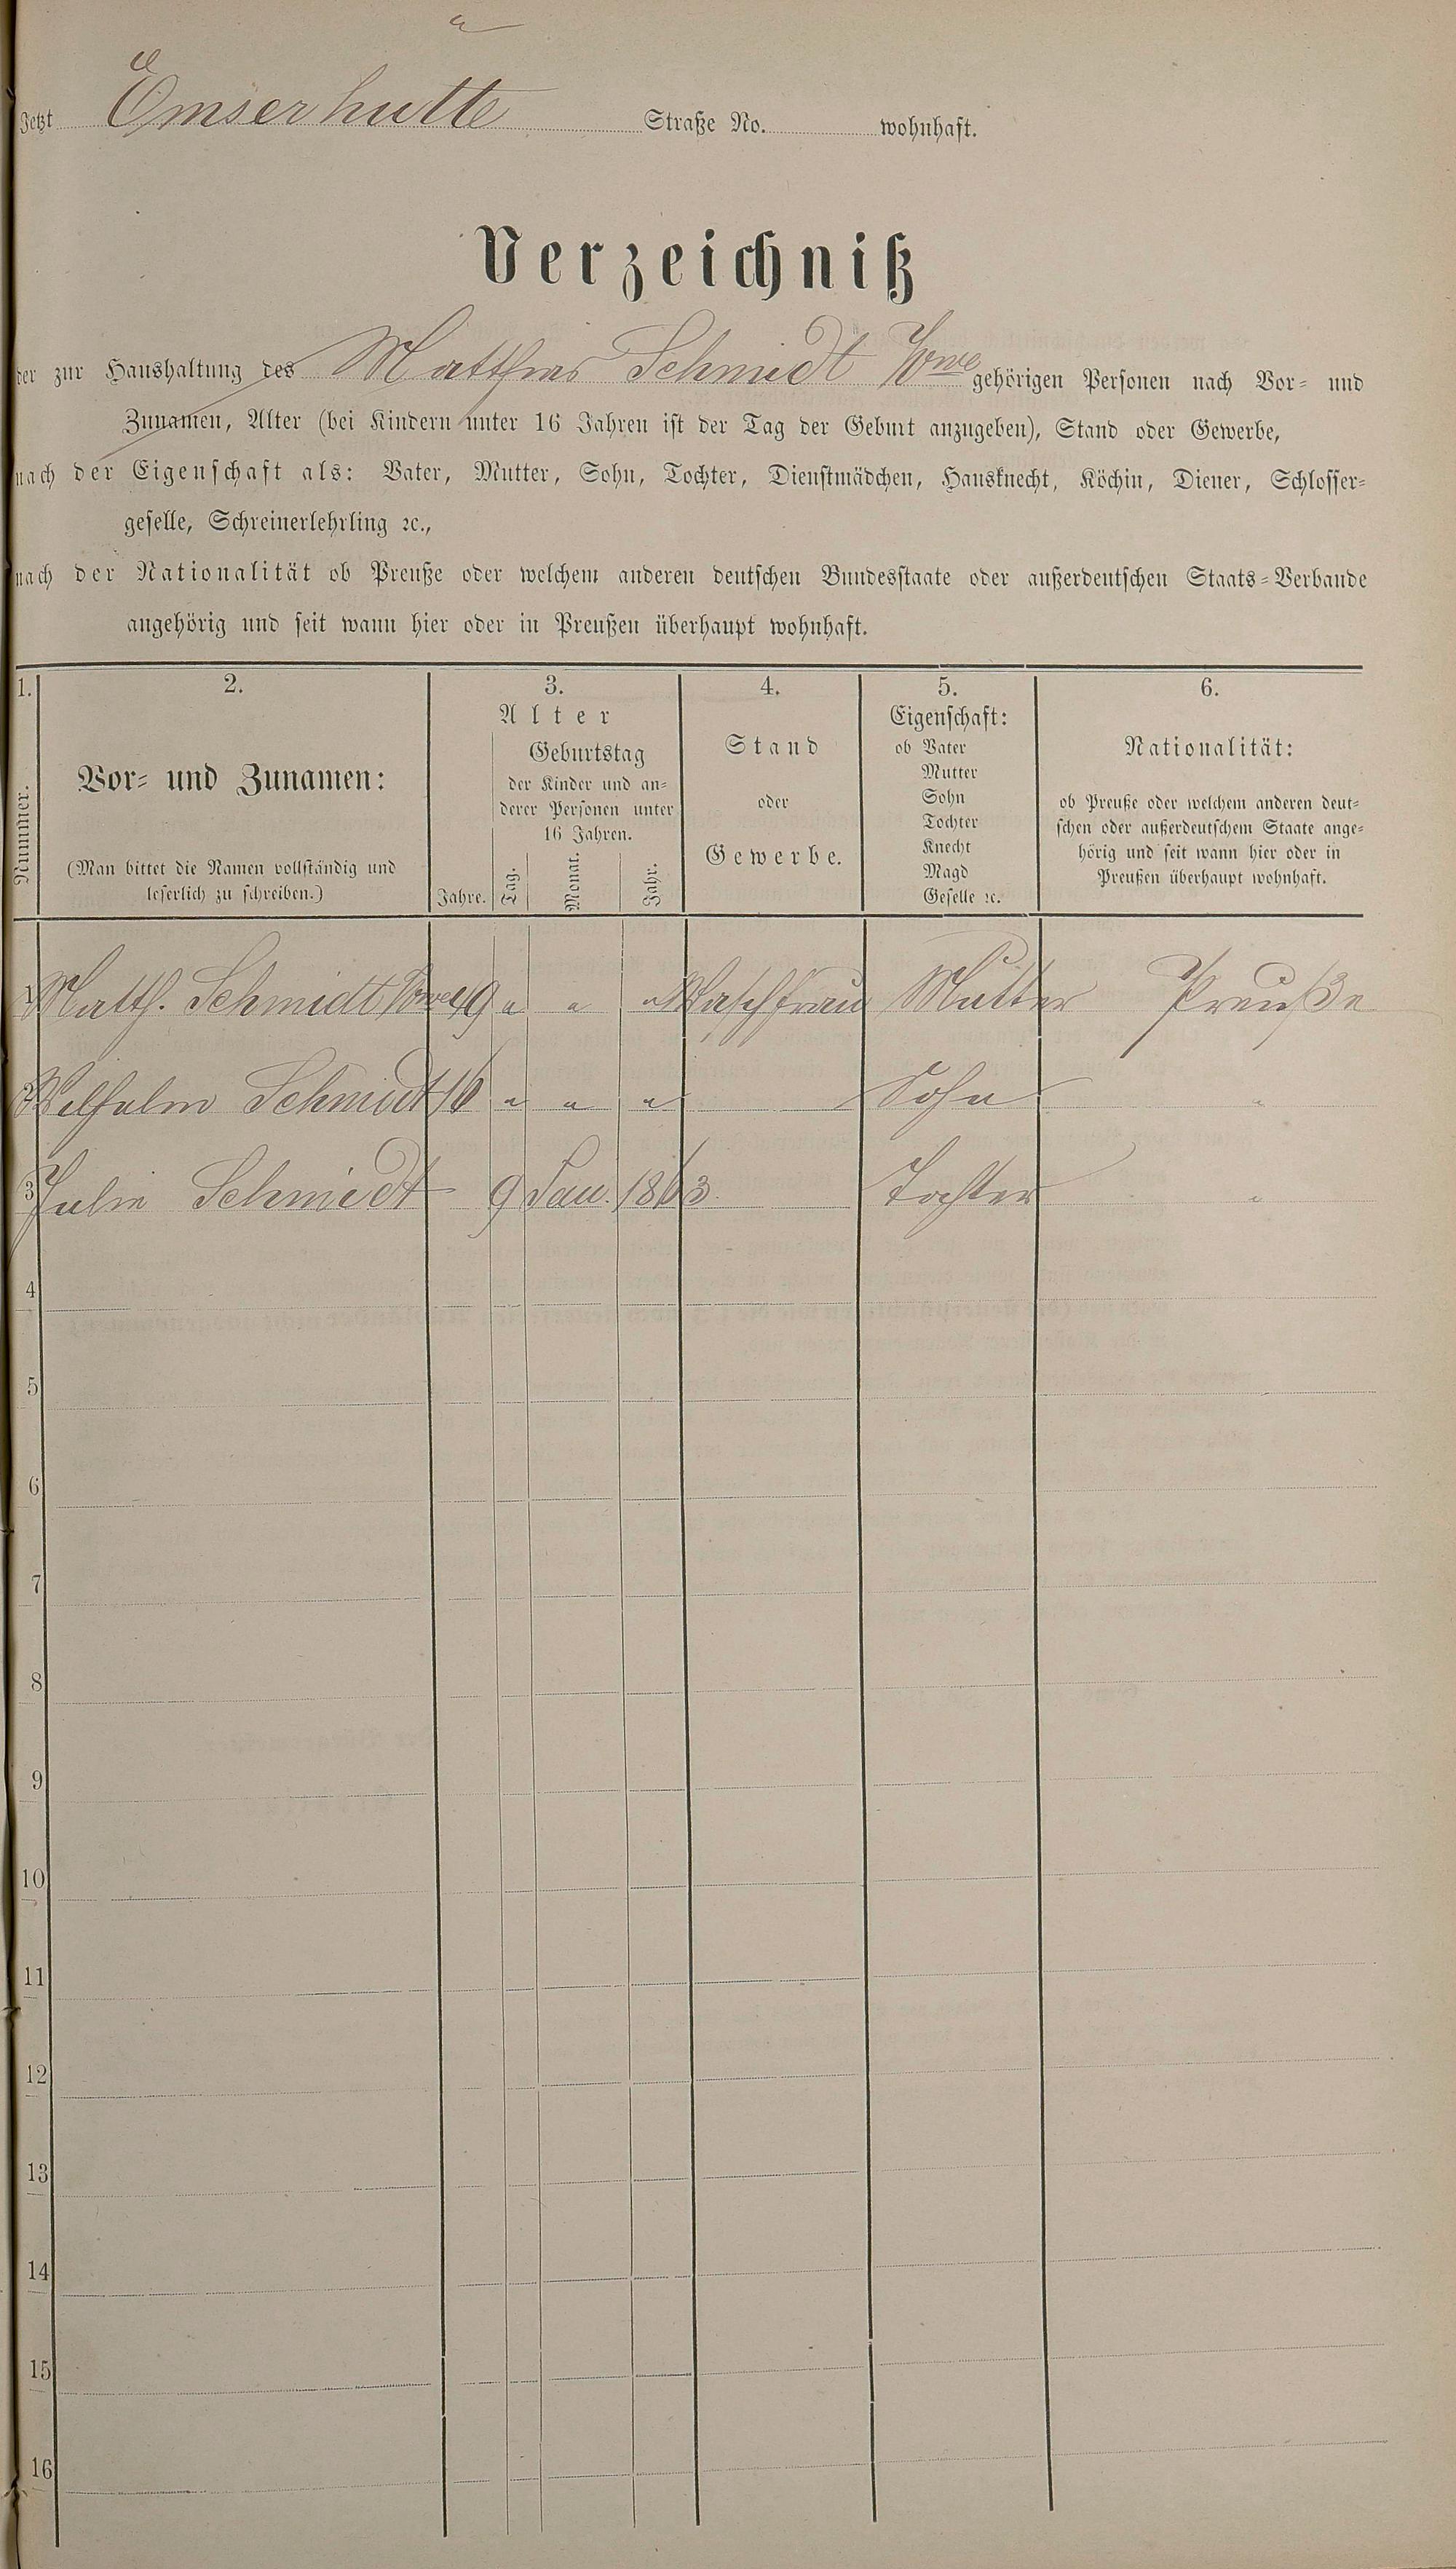 Jetzt Emserhütte Straße No. wohnhaft.
Verzeichniß
der zur Haushaltung des Matthias Schmidt Wwe gehörigen Personen nach Vor- und
Zunamen, Alter (bei Kindern unter 16 Jahren ist der Tag der Geburt anzugeben), Stand oder Gewerbe,
nach der Eigenschaft als: Vater, Mutter, Sohn, Tochter, Dienstmädchen, Hausknecht, Köchin, Diener, Schlosser-
geselle, Schreinerlehrling ꝛc.,
nach der Nationalität ob Preuße oder welchem anderen deutschen Bundesstaate oder außerdeutschen Staats-Verbande
angehörig und seit wann hier oder in Preußen überhaupt wohnhaft.
1. 2. 3. 4. 5. 6.
Nummer.
Vor- und Zunamen:
(Man bittet die Namen vollständig und
leserlich zu schreiben.)
Alter
Jahre.
Geburtstag
der Kinder und an-
derer Personen unter
16 Jahren.
Tag. Monat. Jahr.
Stand
oder
Gewerbe.
Eigenschaft:
ob Vater
Mutter
Sohn
Tochter
Knecht
Magd
Geselle ꝛc.
Nationalität:
ob Preuße oder welchem anderen deut-
schen oder außerdeutschem Staate ange-
hörig und seit wann hier oder in
Preußen überhaupt wohnhaft.
1 Matth. Schmidt Wwe 49 " " " Waschfrau Mutter Preuße
2 Wilhelm Schmidt 16 " " " Sohn "
3 Julie Schmidt 9 Jan. 1863. Tochter "
4
5
6
7
8
9
10
11
12
13
14
15
16